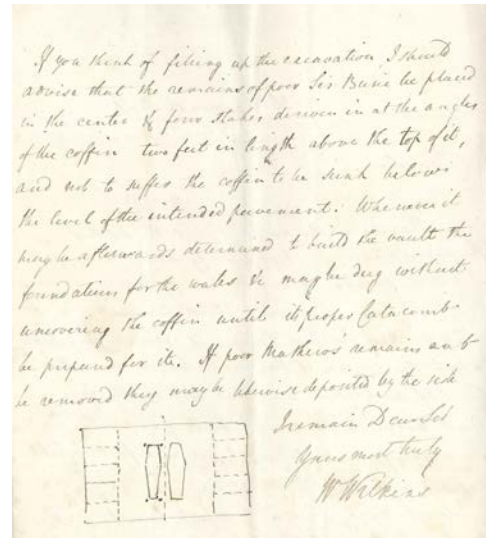 If you think of filling up the excavation I should
advise that the remains of poor Sir Busic be placed
in the center & four stakes driven in at the angles
of the coffin two feet in length above the top of it,
and not to suffer the coffin to be sunk below
the level of the intended pavement. Whenever it
may be afterwards determined to build the vault the
foundations for the walls &c may be dug without
uncovering the coffin until its proper Catacomb
be prepared for it. If poor Mathews's remains are to
be removed they may be likewise deposited by the side
I remain Dear Sir
Yours most truly
W Wilkins